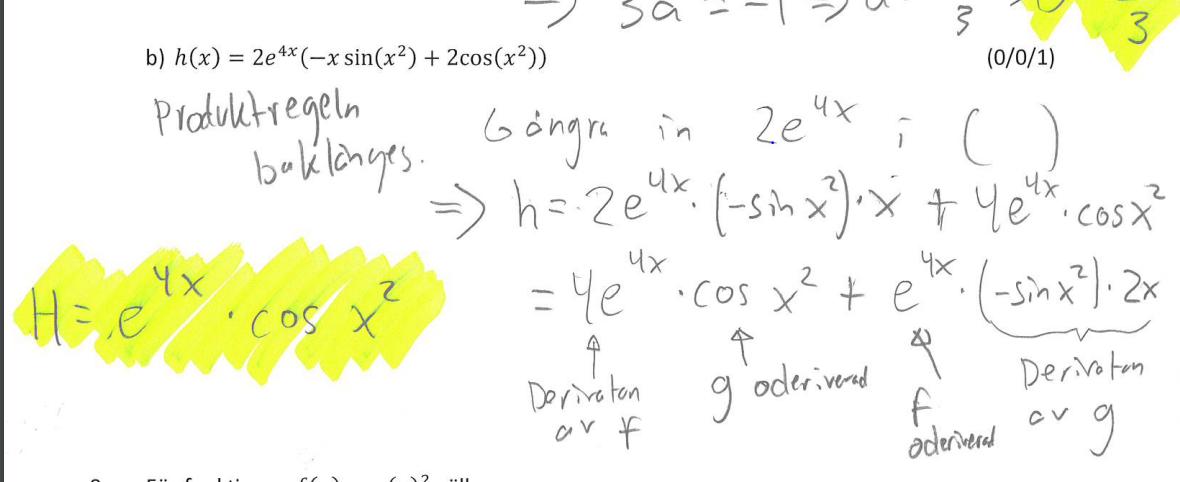 ⇒ 3a = -1 ⇒ a
3
3
b) h(x) = 2e⁴ˣ(−x sin(x²) + 2cos(x²)) (0/0/1)
Produktregeln
baklänges.
Gångra in 2e⁴ˣ i ( )
⇒ h = 2e⁴ˣ · (-sin x²) · x + 4e⁴ˣ · cosx²
= 4e⁴ˣ · cos x² + e⁴ˣ · (-sinx²) · 2x
H = e⁴ˣ · cos x²
Derivatan
av f
g oderiverad
f
oderiverad
Derivatan
av g